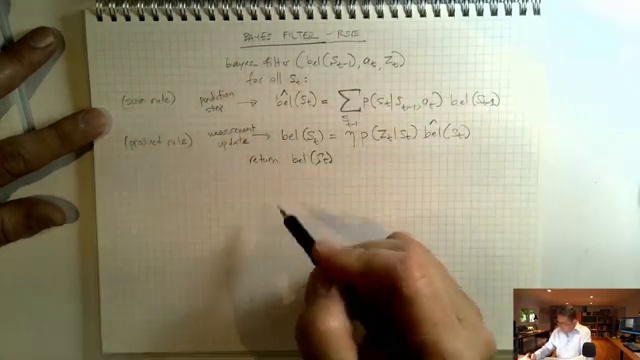 BAYES FILTER - RSE
bayes filter (bel(Sₜ₋₁), aₜ, Zₜ)
for all Sₜ:
(sum rule) prediction step → bel̂(Sₜ) = ∑ₛₜ₋₁ p(Sₜ|Sₜ₋₁, aₜ) bel(Sₜ₋₁)
(product rule) measurement update → bel(Sₜ) = η p(Zₜ|Sₜ) bel̂(Sₜ)
return bel(Sₜ)